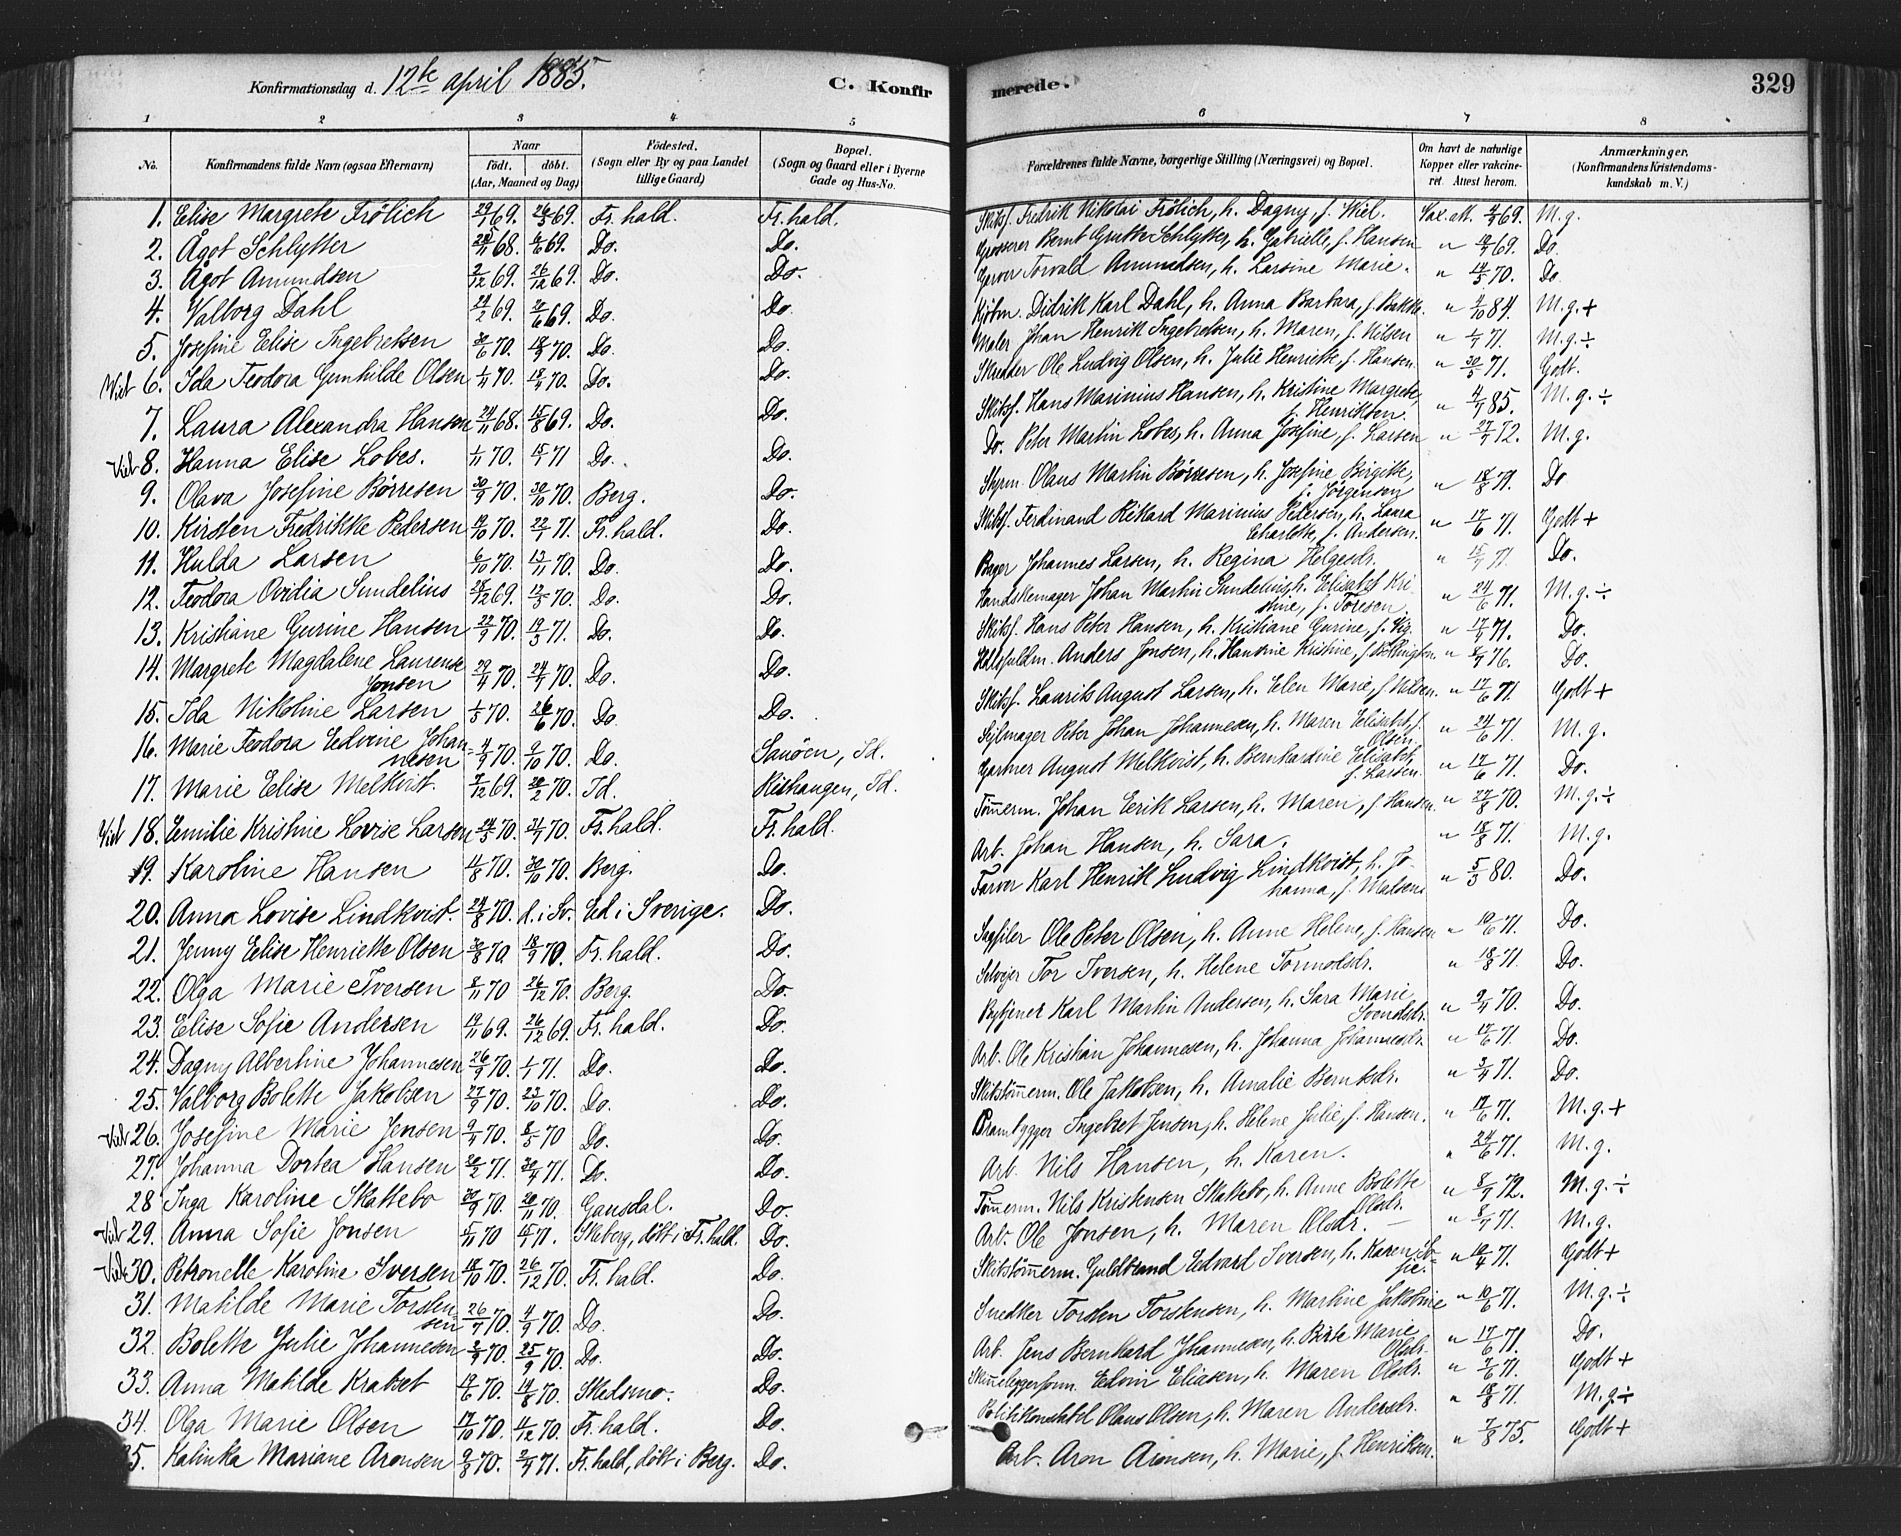 Konfirmationsdag d. 12te april 1885.
C. Konfir
1 2 3 4 5
No. Konfirmandens fulde Navn (ogsaa Efternavn) Naar födt. döbt. (Aar, Maaned og Dag) Födested. (Sogn eller By og paa Landet tillige Gaard) Bopæl. (Sogn og Gaard eller i Byerne Gade og Hus-No.
1. Elise Margrete Frölich 29/1 69. 26/3 69. Fr. hald. Fr. hald.
2. Ågot Schlytter 68. 6/6 69. Do. Do.
3. Ågot Amundsen 2/12 69. 26/12 69. Do. Do.
4. Valborg Dahl 24/2 69. 20/6 69. Do. Do.
5. Josefine Elise Ingebretsen 70. 18/9 70. Do. Do.
6. Ida Teodora Gunhilde Olsen 1/11 70. 70. Do. Do.
7. Laura Alexandra Hansen 24/11 68. 15/8 69. Do. Do.
8. Hanna Elise Lobes. 1/11 70. 15/1 71 Do. Do.
9. Olava Josefine Börresen 30/9 70. 30/10 70. Berg. Do.
10. Kirsten Fredrikke Pedersen 19/10 70. 22/1 71. Fr. hald. Do.
11. Hulda Larsen 6/10 70. 13/11 70. Do. Do.
12. Teodora Ovidia Sundelius 28/12 69. 70. Do. Do.
13. Kristiane Gurine Hansen 22/9 70. 19/3 71. Do. Do.
14. Margrete Magdalene Laurense Jonsen 29/4 70. 24/7 70. Do. Do.
15. Ida Nikoline Larsen 1/5 70. 26/6 70. Do. Do.
16. Marie Teodora Edvine Johannesen 4/9 70. 9/10 70. Do. Sauöen, Id.
17. Marie Elise Melkvist. 7/12 69. 20/2 70. Id. Id.
18. Emilie Kristine Lovise Larsen 24/5 70. 70. Fr. hald. Fr. hald.
19. Karoline Hansen 4/8 70. 30/10 70. Berg. Do.
20. Anna Lovise Lindkvist. 24/8 70. d. i Sv. Ed i Sverige. Do.
21. Jenny Elise Henriette Olsen 70. 18/9 70. Fr. hald. Do.
22. Olga Marie Iversen 8/11 70 26/12 70. Berg. Do.
23. Elise Sofie Andersen 19/11 69. 26/12 69. Fr. hald. Do.
24. Dagny Albertine Johannesen 26/9 70. 1/1 71. Do. Do.
25. Valborg Bolette Jakobsen 27/9 70. 23/10 70. Do. Do.
26. Josefine Marie Jensen 9/4 70. 8/5 70 Do. Do.
27. Johanna Dortea Hansen 20/2 71. 30/4 71. Do. Do.
28 Inga Karoline Skattebo 30/9 70. 20/11 70. Gansdal. Do.
29. Anna Sofie Jonsen 5/11 70 71. Skeberg, döbt i Fr. hald. Do.
30. Petronelle Karoline Iversen 18/10 70. 26/12 70. Fr. hald. Do.
31. Matilde Marie Torstensen 26/7 70. 4/9 70. Do. Do.
32. Bolette Julie Johannesen 2/9 70. 25/9 70. Do. Do.
33. Anna Matilde Kratvet 19/6 70. 14/8 70. Skedsmo. Do.
34. Olga Marie Olsen 17/10 70. 4/12 70. Fr. hald. Do.
35. Kalinka Mariane Aronsen 9/8 70. 2/4 71. Fr. hald, döbt i Berg. Do.
merede. 329
6 7 8
Forældrenes fulde Navne, borgerlige Stilling (Næringsvei) og Bopæl. Om havt de naturlige Kopper eller vakcineret. Attest herom. Anmærkninger. (Konfirmandens Kristendomskundskab m. V.)
Skibsf. Fredrik Nikolai Frölich, h. Dagny, f. Wiel. Vax. att. 69. M. g.
Grosserer Bernt Grütte Schlytter, h. Gabrielle, f. Hansen " 69. Do.
Garver Torvald Amundsen, h. Larsine Marie. " 14/5 70. Do.
Kjöbm. Didrik Karl Dahl, h. Anna Barbara, f. Bakke. " 4/10 84. M. g. +
Maler Johan Henrik Ingebretsen, h. Maren, f. Nilsen " 1/7 71. M. g. ÷
Skredder Ole Ludvig Olsen, h. Julie Henriette, f. Hansen. " 30/5 71. Godt.
Skibsf. Hans Marinius Hansen, h. Kristine Margrete, f. Henriksen. " 4/1 85. M. g. ÷
Do. Peter Martin Lobes, h. Anna Josefine, f. Larsen " 72. M. g.
Styrm. Olaus Martin Börresen, h. Josefine Birgitte, f. Jörgensen " 18/8 79. Do
Skibsf. Ferdinand Rikard Marinius Pedersen, h. Laura Charlotte, f. Andersen. " 17/6 71. Godt +
Bager Johannes Larsen, h. Regina Helgesdr. " 71. Do.
Handskemager Johan Martin Sundelius, h. Elisabet Kristine, f. Toresen. " 24/6 71. M. g. ÷
Skibsf. Hans Peter Hansen, h. Kristiane Gurine, f. Vig. " 71. Do.
Anders Jonsen, h. Hansine Kristine, " 76. Do.
Skibsf. Laurits August Larsen, h. Elen Marie, f. Nilsen. " 17/6 71. Godt +
Seilmager Peter Johan Johannesen, h. Maren Elisabet, f. Olsen. " 24/6 71. M. g.
Gartner August Melkvist, h. Bernhardine Elisabet, f. Larsen. " 17/6 71. Do.
Tömerm. Johan Eerik Larsen, h. Maren, f. Hansen. " 70. M. g. ÷
Arb. Johan Hansen, h. Sara. " 18/8 71. M. g.
Farver Karl Henrik Ludvig Lindkvist, h. Johanna, f. Matsen. " 5/5 80. Do.
Sagfiler Ole Peter Olsen, h. Anne Helene, f. Hansen " 19/6 71. Do.
Tor Iversen, h. Helene Tormodsdr. " 18/8 71. Do.
Karl Martin Andersen, h. Sara Marie Svendsdr. " 70. Do.
Arb. Ole Kristian Johannesen, h. Johanna Johannesdr. " 17/6 71. Do.
Skibstömerm. Ole Jakobsen, h. Amalie Berntsdr. " 71. Do.
Prambygger Ingebret Jensen, h. Helene Julie, f. Hansen. " 17/6 71. M. g. +
Arb. Nils Hansen, h. Karen. " 24/6 71. M. g.
Tömerm. Nils Kristensen Skattebo, h. Anne Bolette Olsdr. " 8/7 72. M. g. ÷
Arb. Ole Jonsen, h. Maren Olsdr. — " 8/7 71. M. g.
Skibstömerm. Guldbrand Edvard Iversen, h. Karen Sofie. " 71. Godt +
Snedker Torsten Torstensen, h. Martine Jakobine " 10/6 71. M. g. ÷
Arb. Jens Bernhard Johannesen, h. Birte Marie Olsdr. " 17/6 71. Do.
Edvin Eliasen, h. Maren Olsdr. " 71. Godt +
Politikonstabel Olaus Olsen, h. Maren Andersdr. " 18/8 71. M. g ÷
Arb. Aron Aronsen, h. Marie, f. Henriksen. " 7/8 75. Godt +